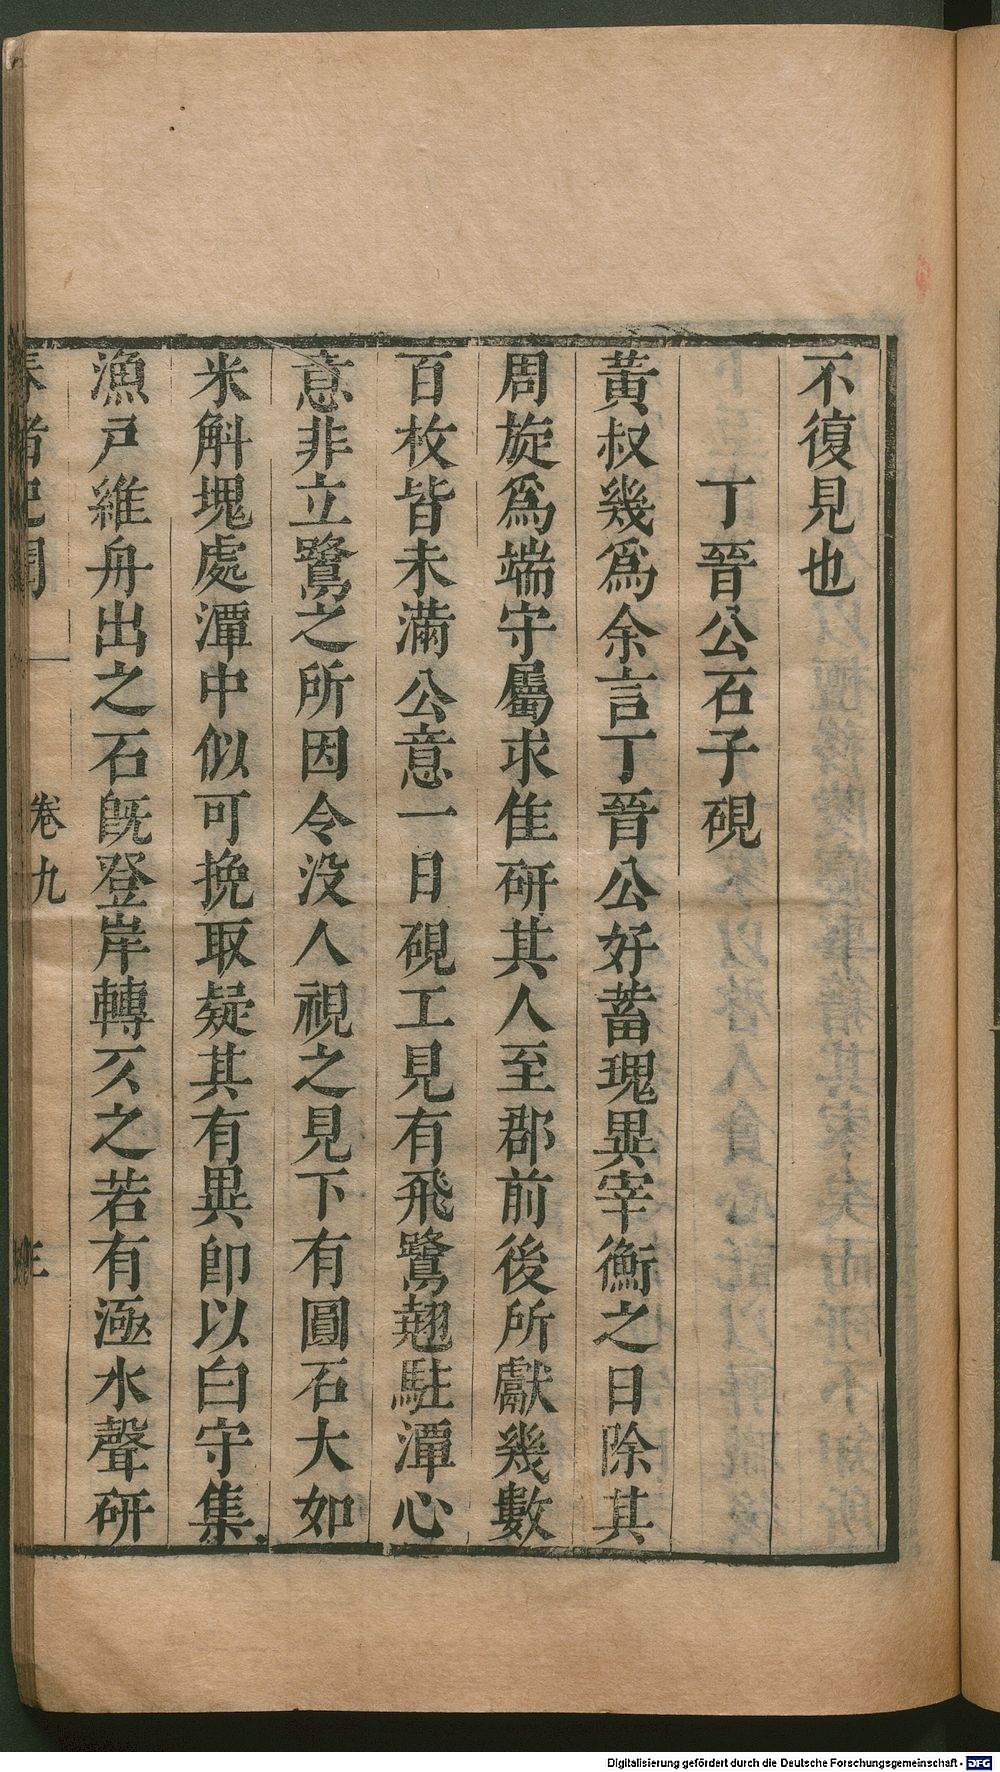 不復見也
丁晉公石子硯
黃叔幾爲余言丁晉公好蓄瑰異宰衡之日除其
周旋爲端守屬求隹研其人至郡前後所獻幾數
百枚皆未滿公意一日硯工見有飛鷺翹駐潭心
意非立鷺之所因令没人視之見下有圓石大如
米斛塊處潭中似可挽取疑其有異卽以白守集
漁戶維舟出之石旣登岸轉仄之若有涵水聲研
春渚紀聞
卷九
三
Digitalisierung gefördert durch die Deutsche Forschungsgemeinschaft - DFG